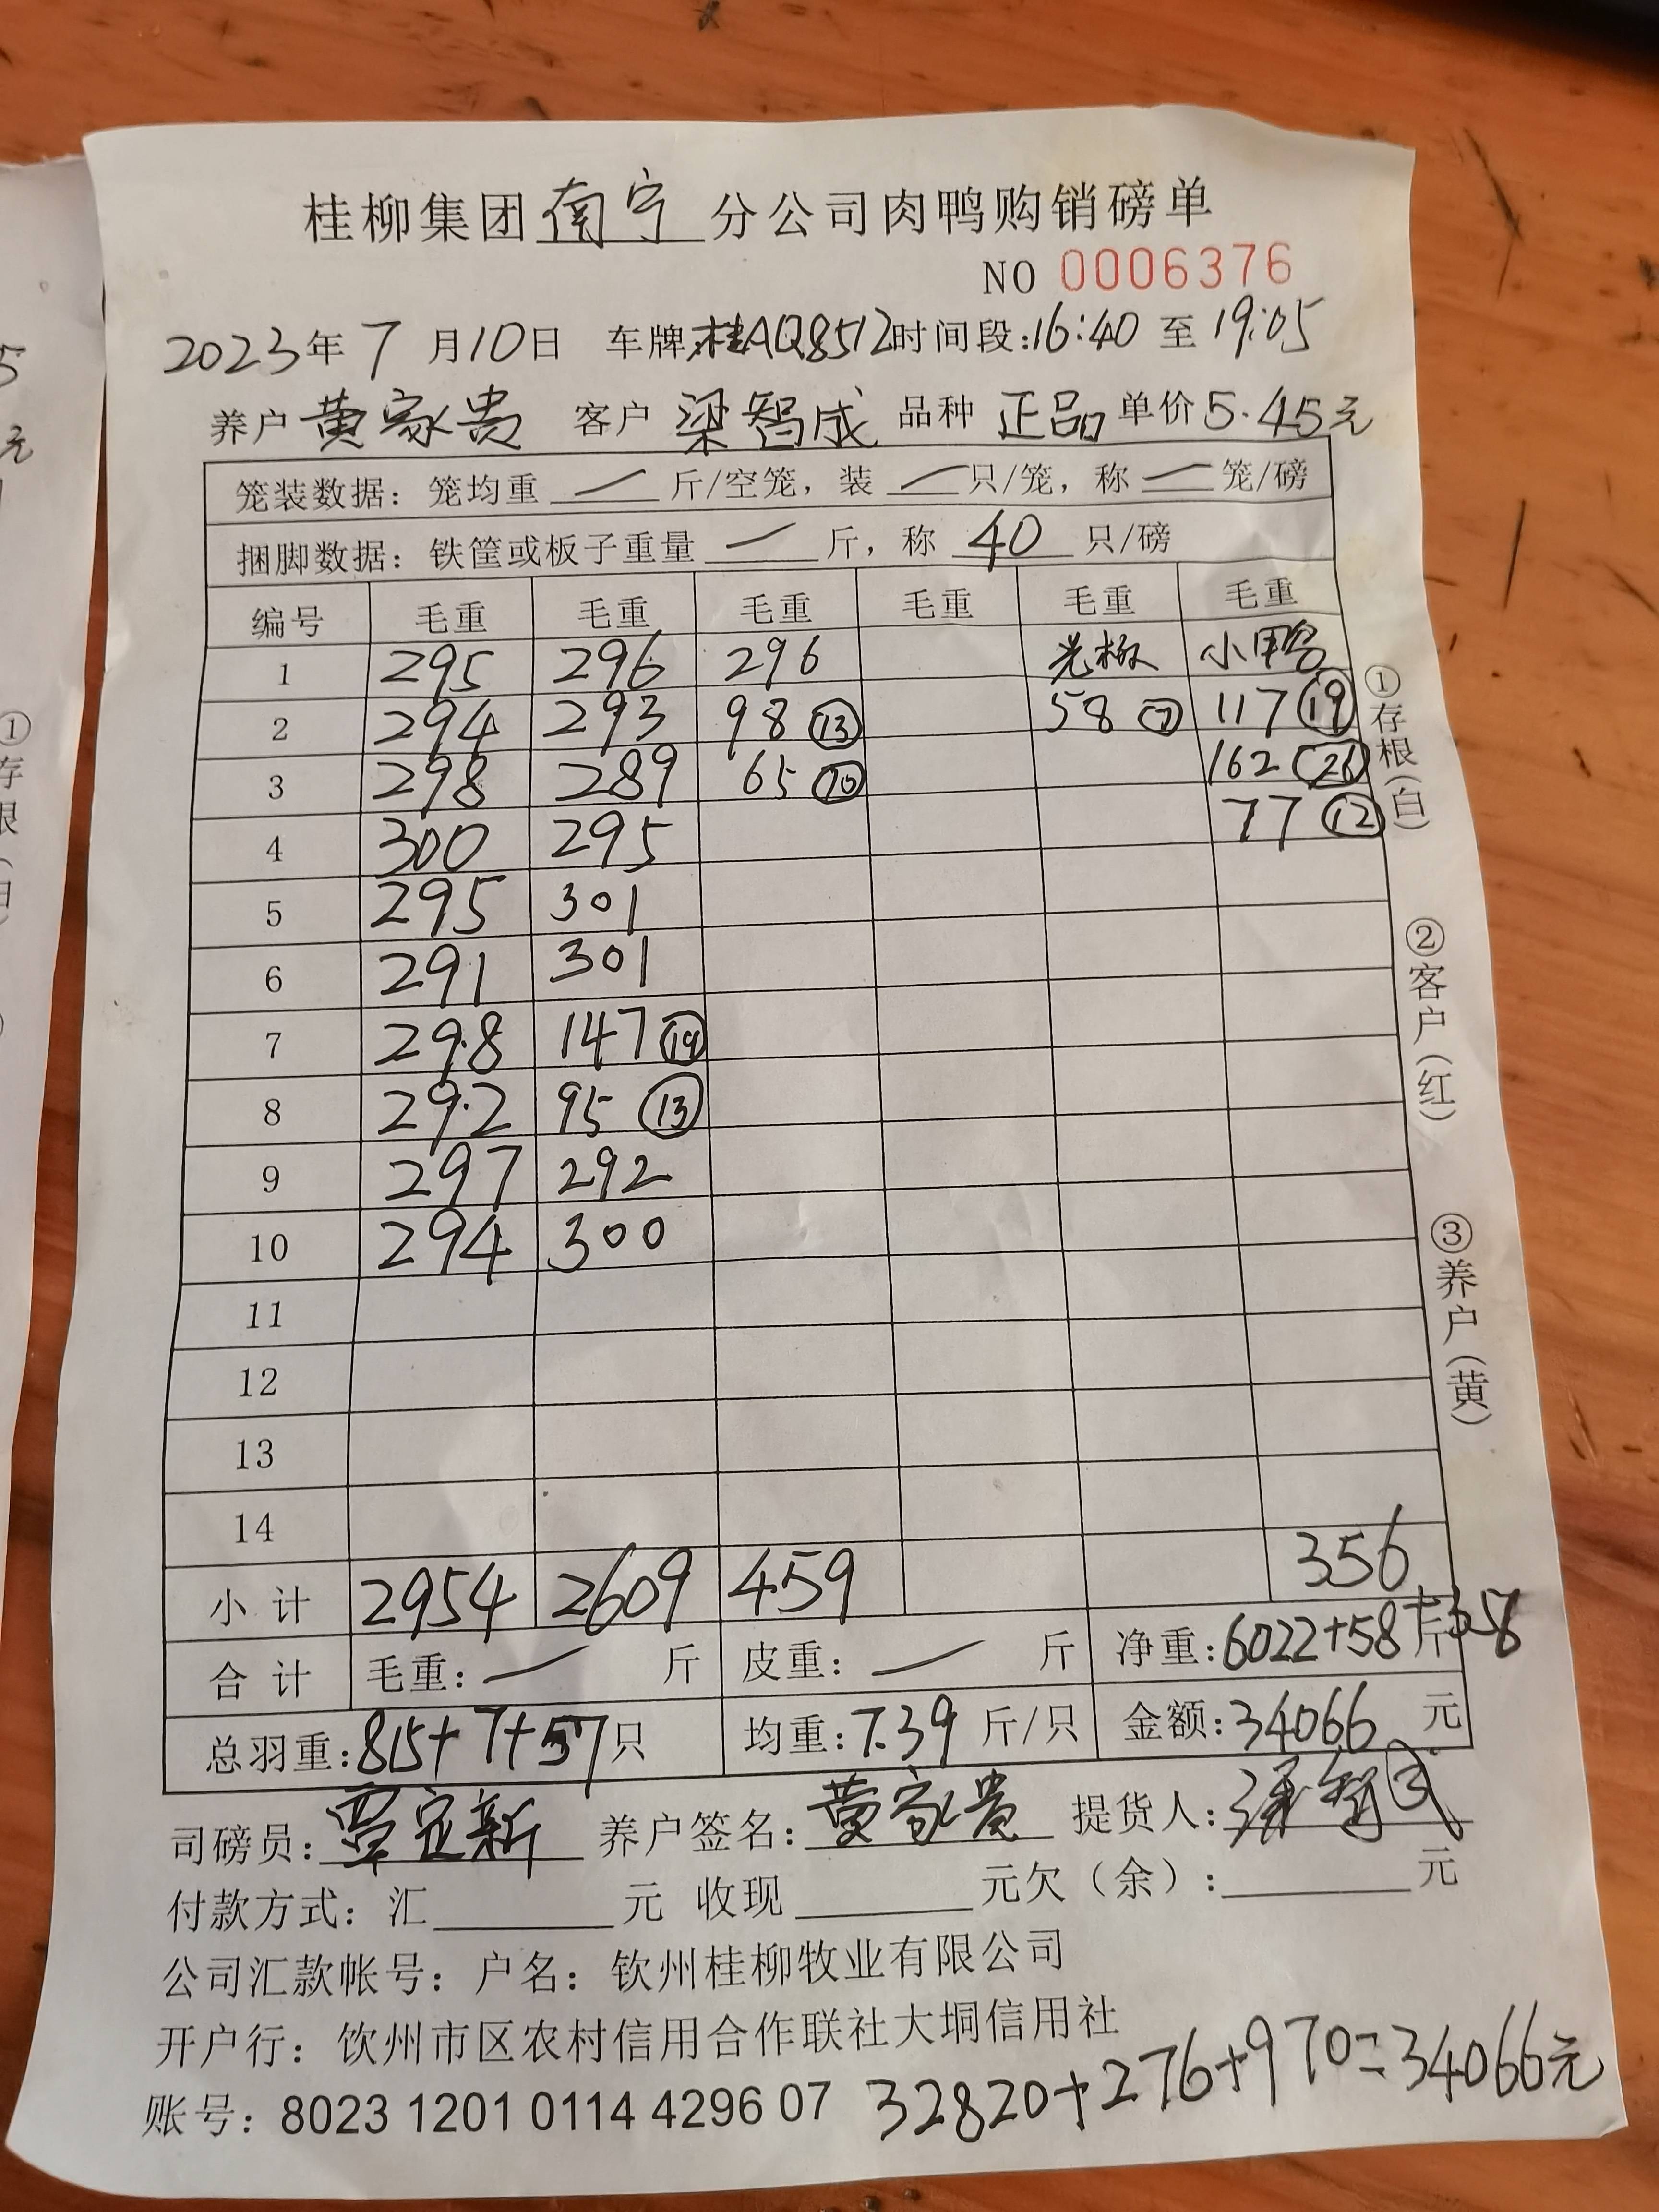 桂柳集团南宁分公司肉鸭购销磅单
NO 0006376
2023年7月10日 车牌:桂AQ8512 时间段:16:40 至 19:05
养户 黄家贵 客户 梁智成 品种 正品 单价 5.45元
笼装数据：笼均重 — 斤/空笼，装 — 只/笼，称 — 笼/磅
捆脚数据：铁筐或板子重量 — 斤，称 40 只/磅
编号 毛重 毛重 毛重 毛重 毛重 毛重
1 295 296 296 光板 小鸭
2 294 293 98 ⑬ 58 ⑦ 117 ⑲
3 298 289 65 ⑩ 162
4 300 295 77 ⑫
5 295 301
6 291 301
7 298 147
8 292 95 ⑬
9 297 292
10 294 300
11
12
13
14
小计 2954 2609 459 356
合计 毛重：— 斤 皮重：— 斤 净重：6022+58+356 斤
总羽重：815+7+57只 均重：7.39 斤/只 金额：34066 元
司磅员：覃定新 养户签名：黄家贵 提货人：
付款方式：汇 元 收现 元欠（余）： 元
公司汇款帐号：户名：钦州桂柳牧业有限公司
开户行：饮州市区农村信用合作联社大垌信用社
账号：8023 1201 0114 4296 07 32820+276+970=34066元
①存根（白）
②客户（红）
③养户（黄）
5
元
①存根（白）